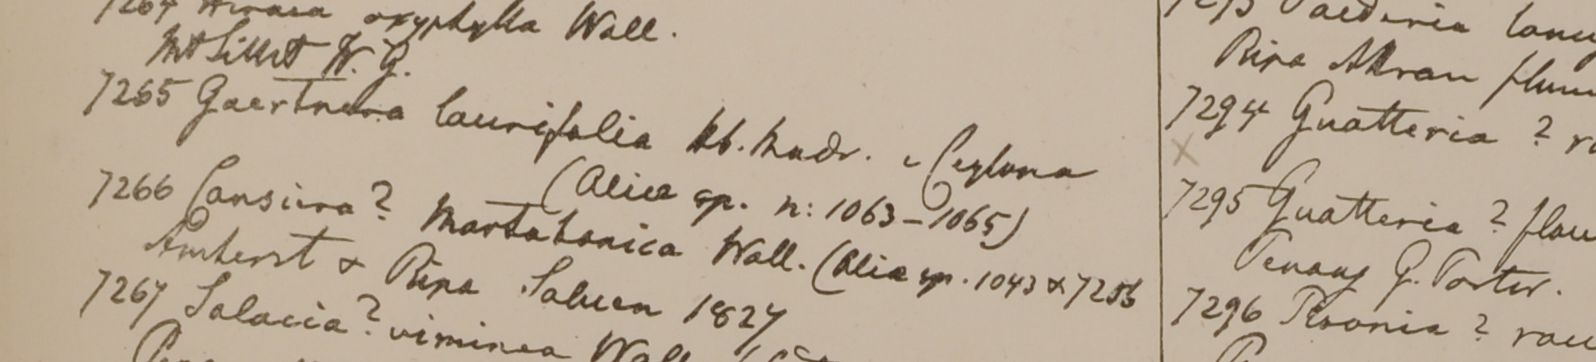 7264 oxyphylla Wall.
Mt Sillet W. G.
7265 Gaertnera laurifolia hb. madr. e Ceylona
(Aliae sp. n: 1063-1065)
7266 Cansiera? Martabanica Wall. (Aliae sp. 1043 & 7256
Amherst & Ripa Saluen 1827
7267 Salacia? viminea Wall.
7293 Paederia
Ripa Akran
7294 Guatteria ?
x
7295 Guatteria ?
Penang G. Porter.
7296 ?